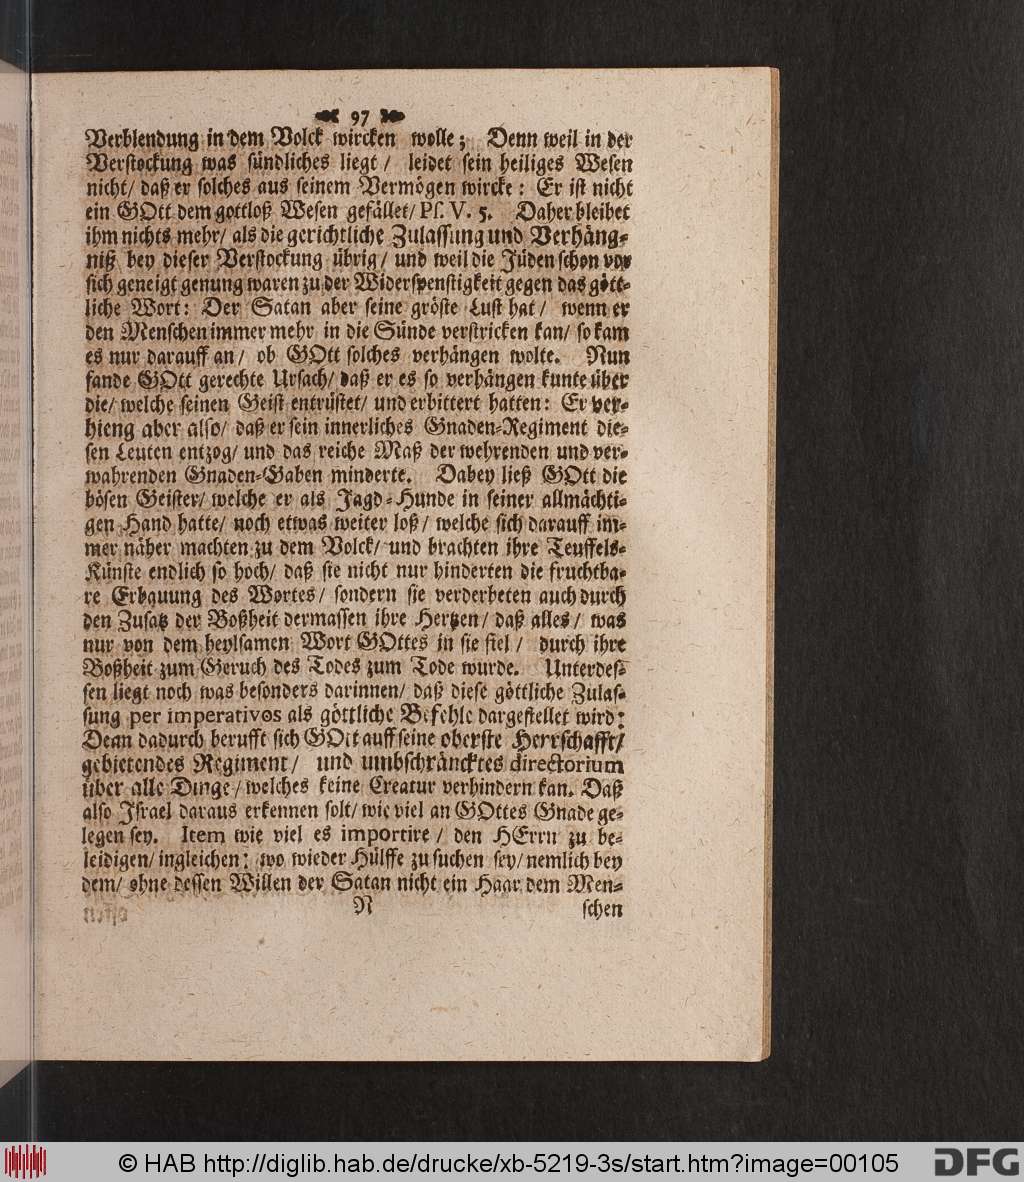 97
Verblendung in dem Volck wircken wolle; Denn weil in der
Verstockung was sündliches liegt/ leidet sein heiliges Wesen
nicht/ daß er solches aus seinem Vermögen wircke: Er ist nicht
ein GOtt dem gottloß Wesen gefället/ Ps. V. 5. Daher bleibet
ihm nichts mehr/ als die gerichtliche Zulassung und Verhäng-
niß bey dieser Verstockung übrig/ und weil die Jüden schon vor
sich geneigt genung waren zu der Widerspenstigkeit gegen das gött-
liche Wort: Der Satan aber seine gröste Lust hat/ wenn er
den Menschen immer mehr in die Sünde verstricken kan/ so kam
es nur darauff an/ ob GOtt solches verhängen wolte. Nun
fande GOtt gerechte Ursach/ daß er es so verhängen kunte über
die/ welche seinen Geist entrüstet/ und erbittert hatten: Er ver-
hieng aber also/ daß er sein innerliches Gnaden-Regiment die-
sen Leuten entzog/ und das reiche Maß der wehrenden und ver-
wahrenden Gnaden-Gaben minderte. Dabey ließ GOtt die
bösen Geister/ welche er als Jagd-Hunde in seiner allmächti-
gen Hand hatte/ noch etwas weiter loß/ welche sich darauff im-
mer näher machten zu dem Volck/ und brachten ihre Teuffels-
Künste endlich so hoch/ daß sie nicht nur hinderten die fruchtba-
re Erbauung des Wortes/ sondern sie verderbeten auch durch
den Zusatz der Boßheit dermassen ihre Hertzen/ daß alles/ was
nur von dem heylsamen Wort GOttes in sie fiel/ durch ihre
Boßheit zum Geruch des Todes zum Tode wurde. Unterdes-
sen liegt noch was besonders darinnen/ daß diese göttliche Zulas-
sung per imperativos als göttliche Befehle dargestellet wird:
Denn dadurch berufft sich GOtt auff seine oberste Herrschafft/
gebietendes Regiment/ und umbschräncktes directorium
über alle Dinge/ welches keine Creatur verhindern kan. Daß
also Israel daraus erkennen solt/ wie viel an GOttes Gnade ge-
legen sey. Item wie viel es importire/ den HErrn zu be-
leidigen/ ingleichen: wo wieder Hülffe zu suchen sey/ nemlich bey
dem/ ohne dessen Willen der Satan nicht ein Haar dem Men-
N schen
© HAB http://diglib.hab.de/drucke/xb-5219-3s/start.htm?image=00105
DFG